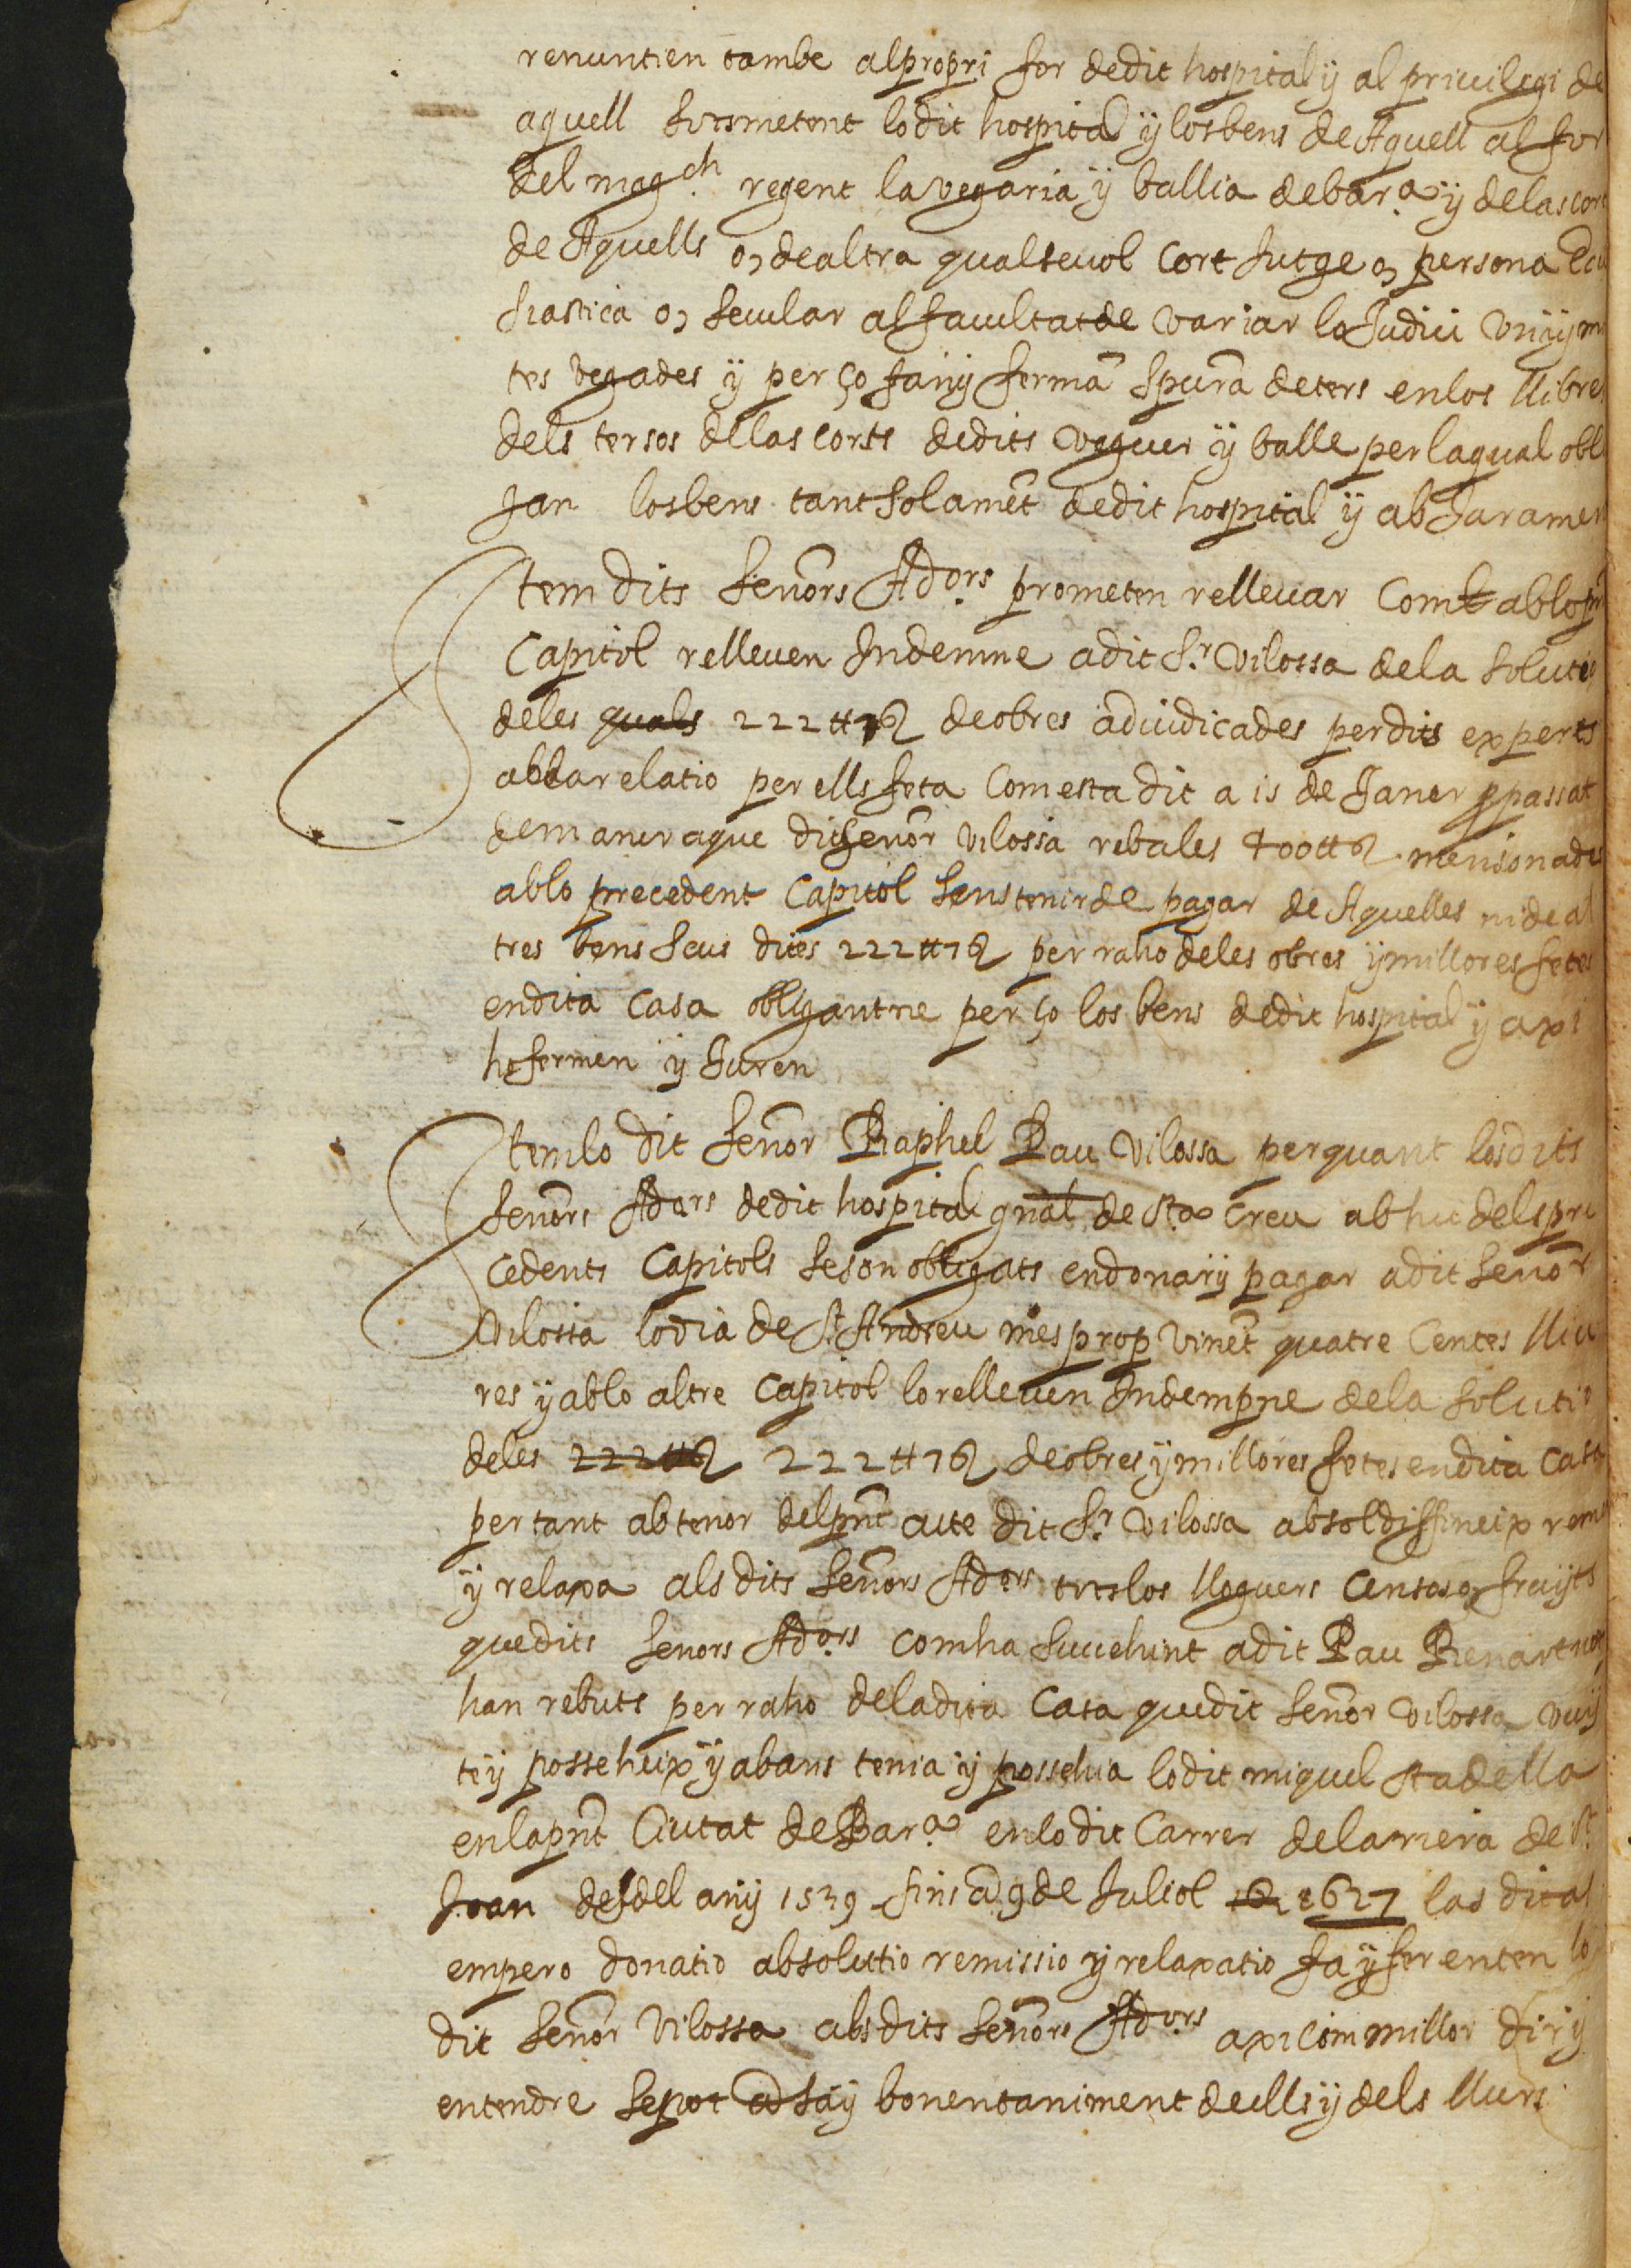 renuntien tambe al propri for de dit hospital ÿ al priuilegi de
aquell sotsmetent lo dit hospital ÿ los bens de Aquell al for
del magch regent la vegaria ÿ ballia de bar.a ÿ de las cort
de Aquells o, de altra qualseuol Cort Jutge o, persona
siastica o, secular ab facultat de variar lo Judici
tes vegades ÿ per ço fan ÿ ferma de ters en los llibre
dels tersos de las corts de dits veguer ÿ balle per la qual obl
jan los bens tant solament de dit hospital ÿ ab Juramen
Item dits senors Adors prometen relleuar Com ab lo
Capitol relleuen Indemne a dit Sr. Vilossa de la solutio
de les quals 222 ₶ 7 ß de obres adiudicades per dits experts
ab la relatio per ells feta Com esta dit a 15 de Janer passat
de manera que dit senor Vilossa reba les 400 ₶ ß mensionades
ab lo precedent Capitol sens tenir de pagar de Aquelles ni de al
tres bens seus dites 222 ₶ 7 ß per raho de les obres ÿ millores fetes
en dita Casa obligantne per ço los bens de dit hospital ÿ axi
ho fermen ÿ Juren
Item lo dit senor Raphel Pau Vilossa per quant los dits
senors Adors de dit hospital gnal de Sta Creu ab hu dels pre
cedents Capitols se son obligats en donar ÿ pagar a dit senor
Vilossa lo dia de St Andreu mes prop vinent quatre Centes lliu
res ÿ ab lo altre Capitol lo relleuen Indempne de la solutio
de les 222 ₶ ß 222 ₶ 7 ß de obres ÿ millores fetes en dita Casa
per tant ab tenor del pnt acte dit Sr Vilossa absol diffineix
ÿ relaxa als dits senors Adors tots los lloguers Censos o, fruÿts
que dits senors Adors com ha succehint a dit Pau Renart
han rebuts per raho de la dita Casa que dit senor Vilossa vuÿ
te ÿ posseheix ÿ abans tenia ÿ possehia lo dit miquel stadella
en la pnt Ciutat de Bar.a en lo dit Carrer de la riera de St
Joan desdel anÿ 1539 fins a 9 de Juliol 16 1627 las ditas
empero donatio absolutio remissio ÿ relaxatio fa ÿ fer enten lo
dit senor Vilossa abs dits senors Adors axi Com millor dir ÿ
entendre se pot a sa ÿ bon enteniment de ells ÿ dels llurs